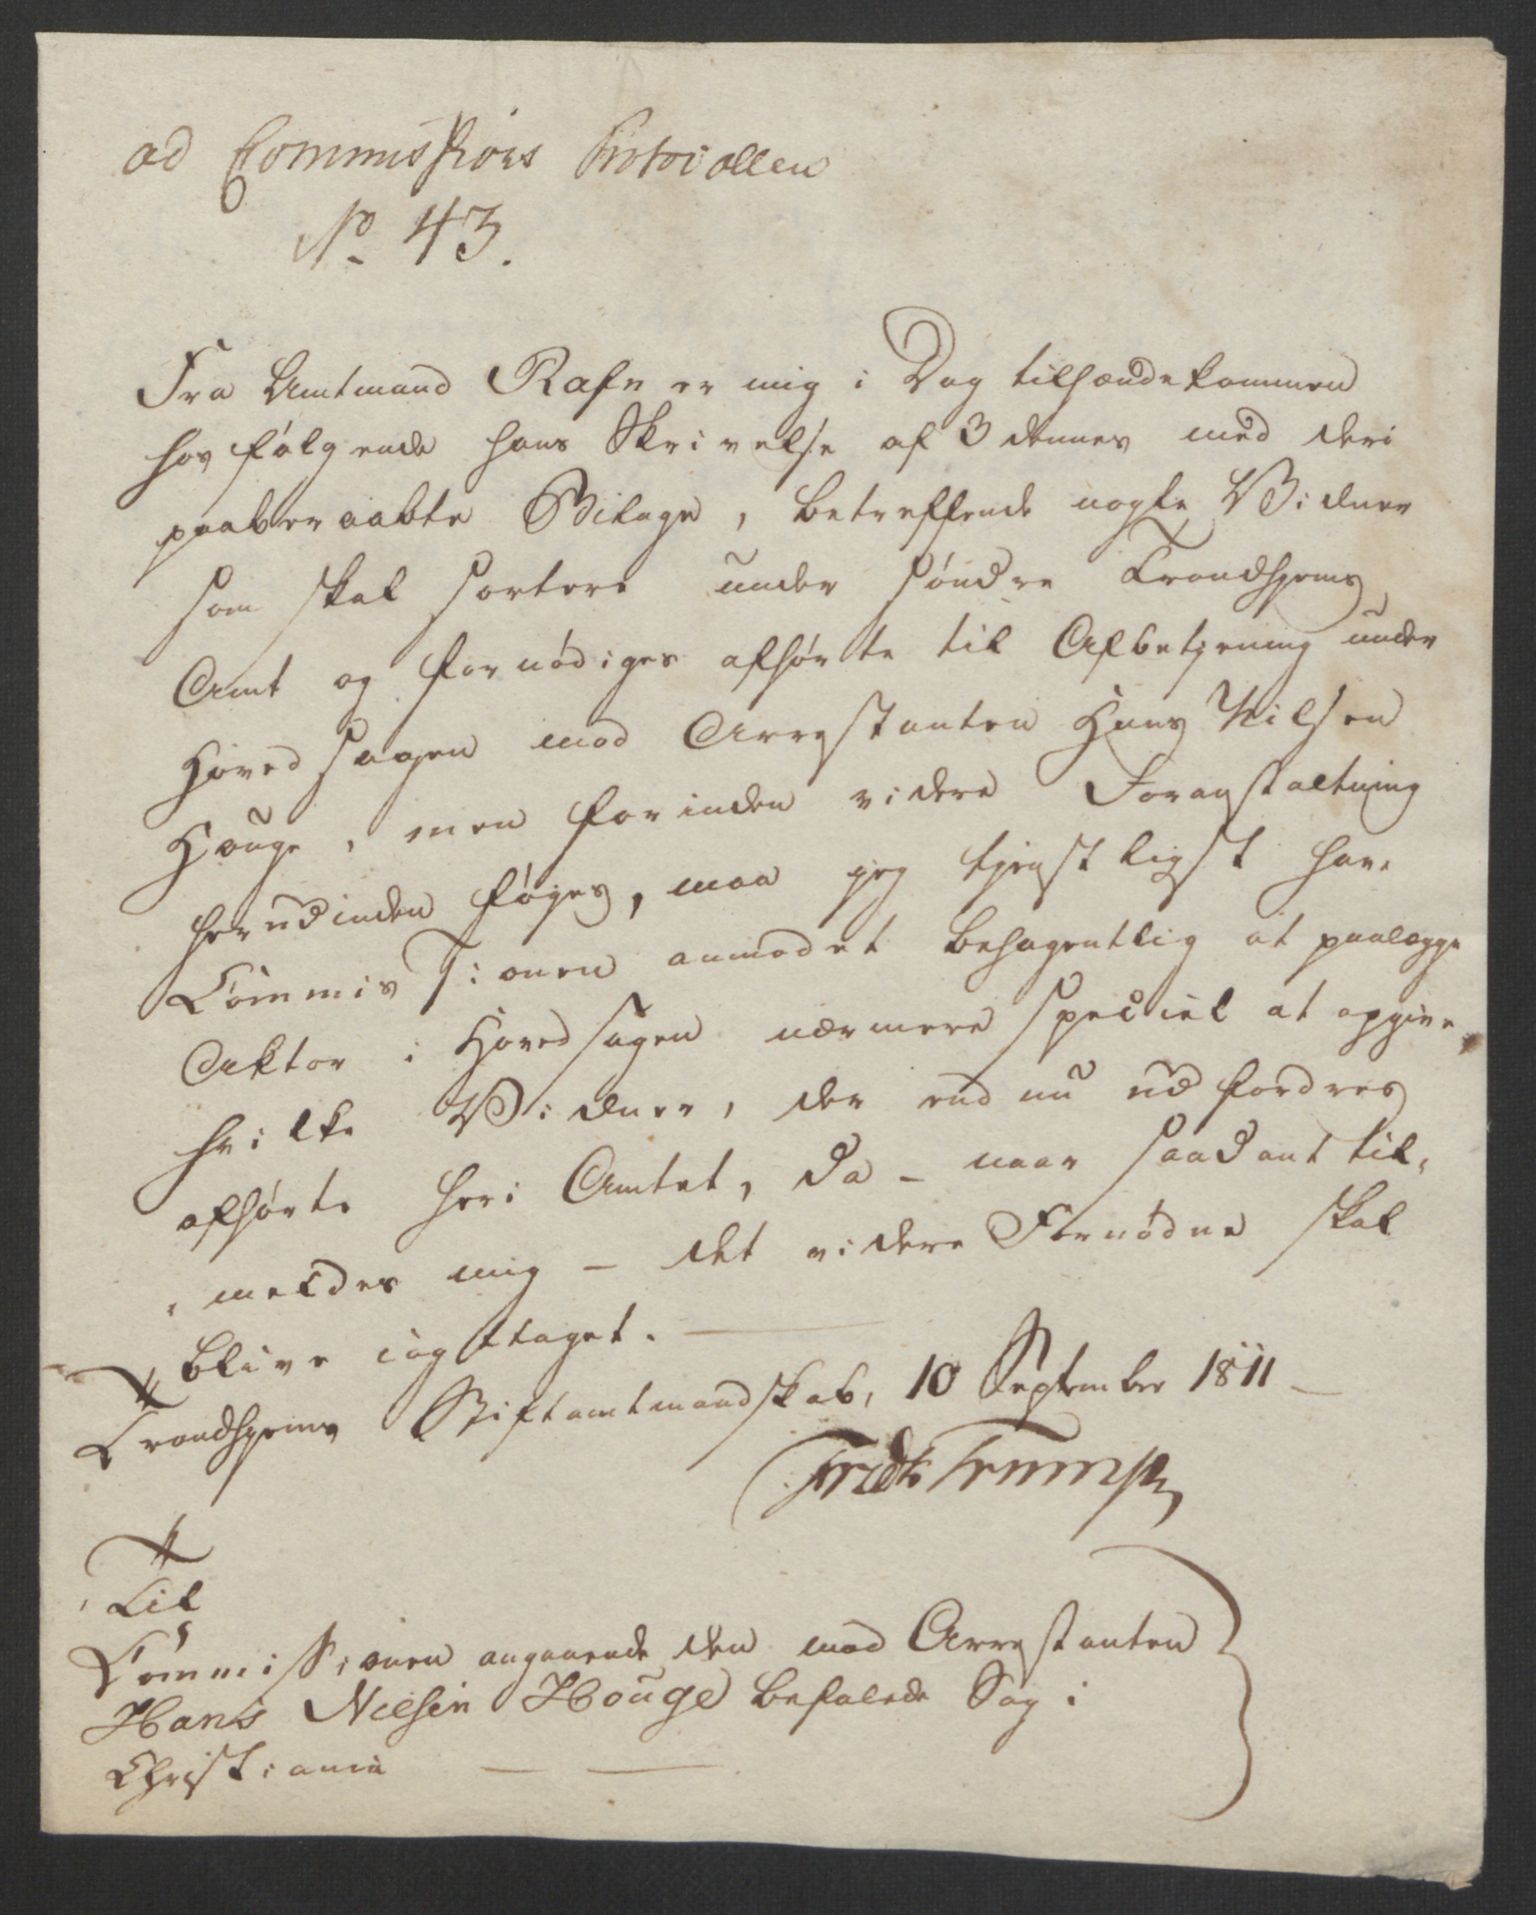 ad Commissions Protocollen
No 43.
Fra Amtmand Rafn er mig i Dag tilhændekommen
hosfølgende hans Skrivelse af 3 dennes med deri
paaberaabte Bilage, betreffende nogle Vidner
som skal sortere under søndre Trondhjems
Amt og fornødiges afhørte til Afbetjening under
Hovedsagen mod Arrestanten Hans Nilsen
Houge, men forinden videre Foranstaltning
herudinden føges, maa jeg tjenstligst have
Commissionen anmodet behagentlig at paalægge
Aktor i Hovedsagen nærmere speciel at opgive
hvilke Vidner, der endnu udfordres
afhørte her i Amtet, da - naar saadant til-
meldes mig - det videre Fornødne skal
blive iagttaget.
Trondhjems Stiftamtmandskab, 10 September 1811
Fridk Trampe
Til
Commissionen angaaende den mod Arrestanten
Hans Nielsen Houge befalede Sag i
Christiania